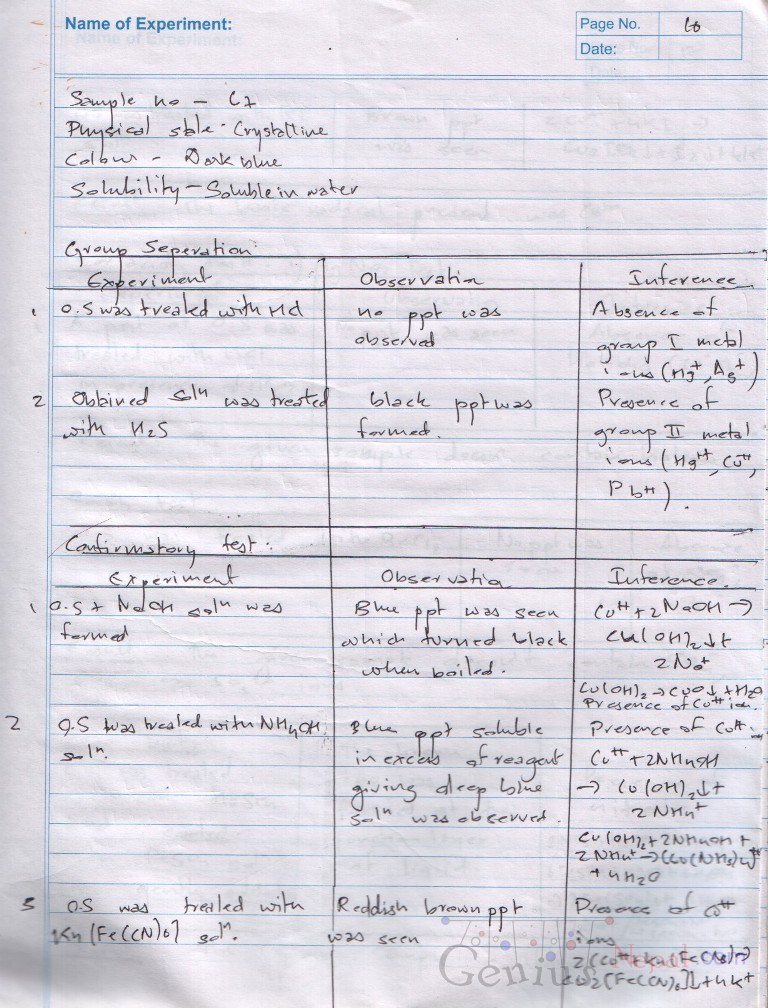 Name of Experiment:
Page No. 16
Date:
Sample no - C7
Physical state - Crystalline
Colour - Dark blue
Solubility - Soluble in water
Group Seperation:
Experiment
Observation
Inference
1 O.S was treated with Hcl
no ppt was
observed
Absence of
group I metal
ions (Hg+, Ag+)
2 Obtained solⁿ was treated
with H2S
black ppt was
formed.
Presence of
group II metal
ions (Hg++, Cu++,
Pb++).
Confirmatory test:
Experiment
Observation
Inference.
1 O.S + NaOH solⁿ was
formed
Blue ppt was seen
which turned black
when boiled.
Cu++ + 2NaOH →
Cu(OH)2↓+
2Na+
Cu(OH)2 → CuO↓ + H2O
Presence of Cu++ ion.
2 O.S was treated with NH4OH
solⁿ.
Blue ppt soluble
in excess of reagent
giving deep blue
solⁿ was observed.
Presence of Cu++.
Cu++ + 2NH4OH
→ Cu(OH)2↓+
2NH4+
Cu(OH)2 + 2NH4OH +
2NH4+ → [Cu(NH3)4]++
+ 4H2O
3 O.S was treated with
K4[Fe(CN)6] solⁿ.
Reddish brown ppt
was seen
Presence of Cu++
ions
2Cu++ K4[Fe(CN)6]→
Cu2[Fe(CN)6]↓+4K+
Genius